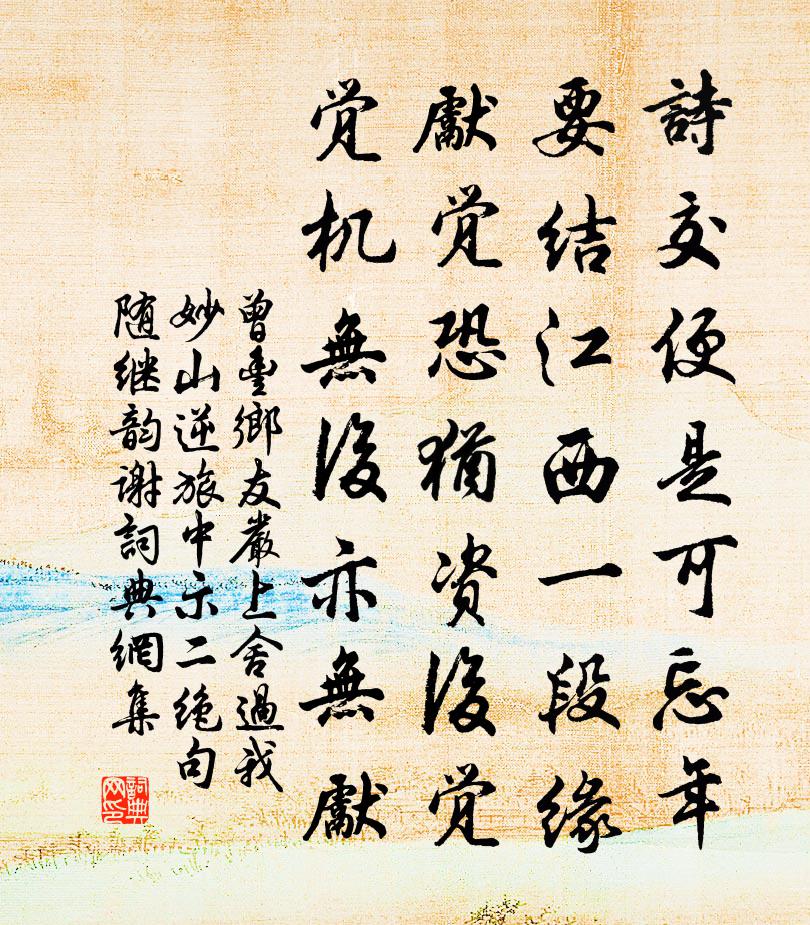 詩交便是可忘年
要结江西一段缘
獻觉恐猶资後觉
觉机無後亦無獻
曾豊鄉友嚴上舍過我
妙山逆旅中示二绝句
随继韵谢詞典網集
詞典
网印